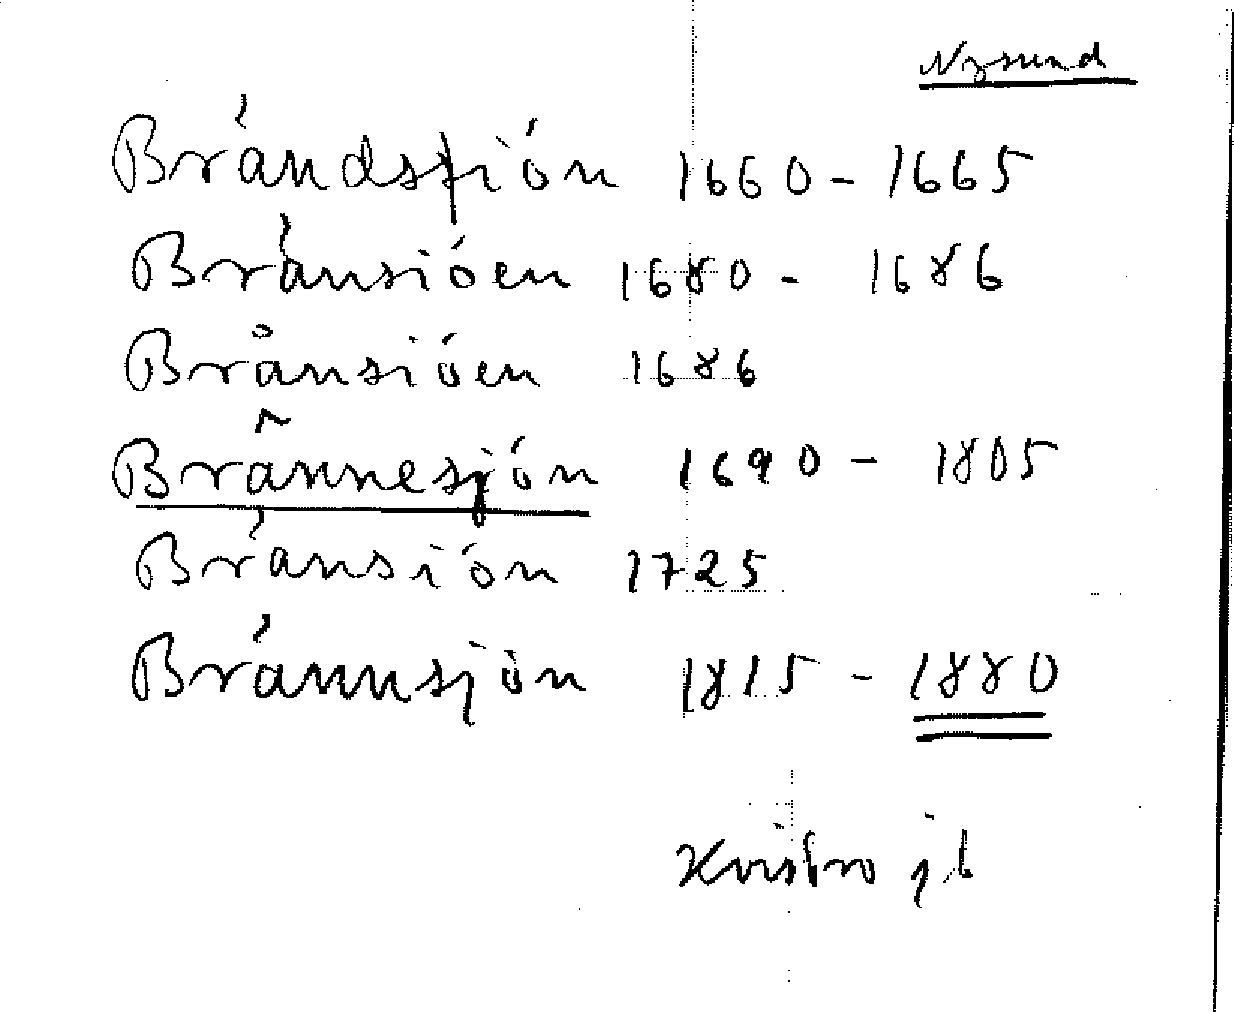 Nysund
Brändsjön 1660 - 1665
Bränsiöen 1680 - 1686
Brånsiöen 1686
Brännesjön 1690 - 1805
Bränsiön 1725
Brännsjön 1815 - 1880